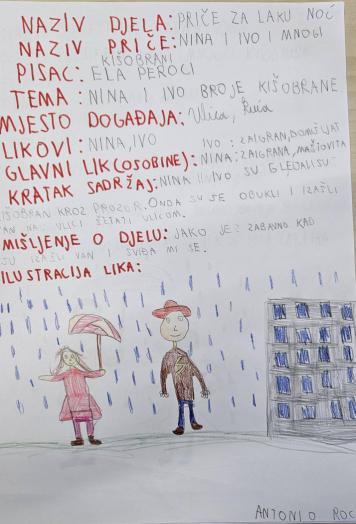 NAZIV DJELA: PRIČE ZA LAKU NOĆ
NAZIV PRIČE: NINA I IVO I MNOGI
KIŠOBRANI
PISAC: ELA PEROCI
TEMA: NINA I IVO BROJE KIŠOBRANE
MJESTO DOGAĐAJA: Ulica, kuća
LIKOVI: NINA, IVO
IVO: ZAIGRAN, DOMIŠLJAT
GLAVNI LIK (OSOBINE): NINA: ZAIGRANA, MAŠTOVITA
KRATAK SADRŽAJ: NINA I IVO SU GLEDALI SU
KIŠOBRAN KROZ PROZOR. ONDA SU SE OBUKLI I IZAŠLI
VAN NA ULICI ŠETATI ULICOM.
MIŠLJENJE O DJELU: JAKO JE ZABAVNO KAD
SU IZAŠLI VAN I SVIĐA MI SE.
ILUSTRACIJA LIKA:
ANTONIO ROC